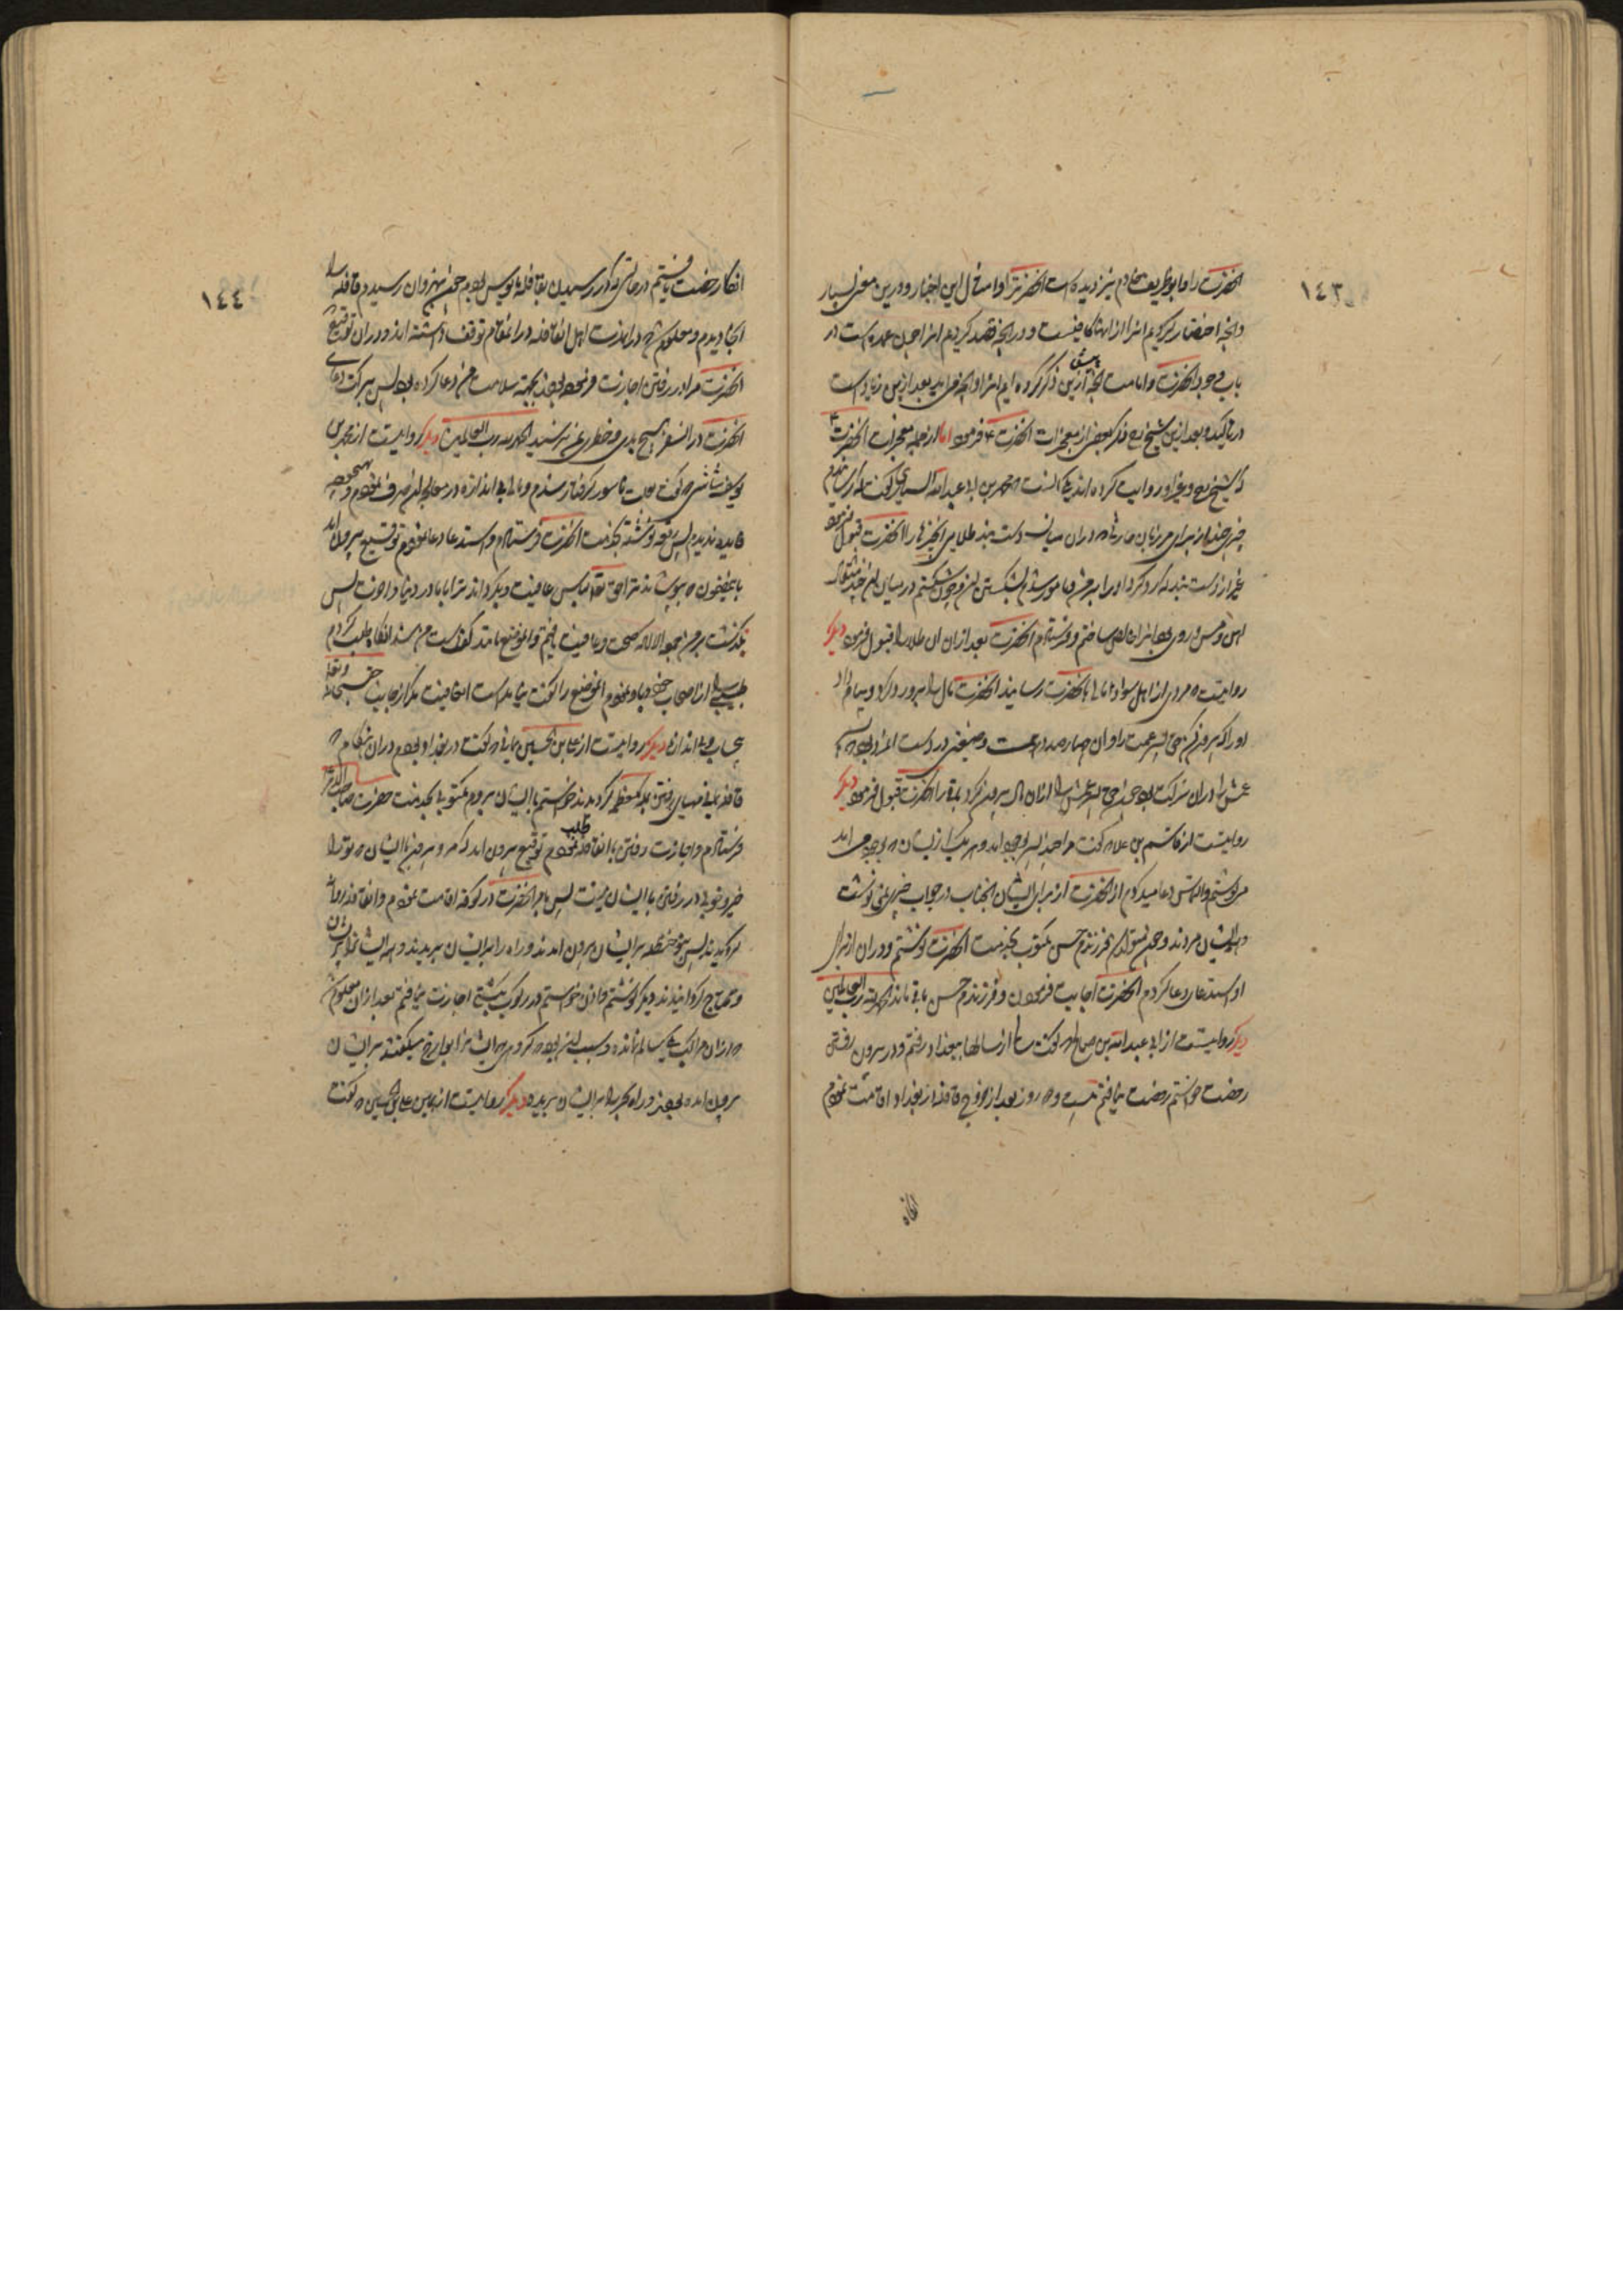 ١٤٣
آنحضرت را و ابو ظریف خادم نیز دیده است آنحضرت را و امثال این اخبار درین معنی بسیار
و آنچه اختصار کردیم آنرا از اینها کافیست و در آنچه قصد کردیم آنرا چون عمده است در
باب وجود آنحضرت و امامت آنچه پیش ازین ذکر کرده ایم آنرا و آنچه می آید بعد ازین زیادست
در تاکید و بعد ازین شیخ ره ذکر بعضی از معجزات آنحضرت ع فرموده اما از جمله معجزات آنحضرت ع
که شیخ ره و غیر او روایت کرده اند یکی آنست که محمد بن ابی عبد الله السیاری گفت که رسانیدم
چیزی چند از برای مرزبان حارثی که در آن میان دست بند طلایی آن چیزها را آنحضرت قبول فرمود
غیر از دست بند که رد کرد او را بر من و مامور شدم بشکستن آن و چون شکستم در میان آن چند مثقال
آهن و مس و روی بود آنرا خالص ساختم و فرستادم آنحضرت بعد از آن آن طلا را قبول فرمود دیگر
روایتست که مردی از اهل سواد مالی بآنحضرت رسانید آنحضرت مال را برو رد کرد و پیام داد
او را که بیرون کن حق پسر عمت را و آن چهار صد درهمست و ضیعتی در دست آنمرد بود که
عمش را در آن شراکت بود چون حق پسر عمش را از آن مال بیرون کرد باقی را آنحضرت قبول فرمود دیگر
روایتست از قاسم بن علاء که گفت مرا چند پسر بوجود آمد و هر یک از ایشان که بوجود می آمد
می نوشتم و التماس دعا میکردم از آنحضرت از برای ایشان آنجناب در جواب چیزی نمی نوشت
و همه ایشان مردند و چون متولد شد فرزندم حسن مکتوب بخدمت آنحضرت نوشتم و در آن از برای
او استدعای دعا کردم آنحضرت اجابت فرمودند و فرزندم حسن باقی ماند الحمد لله رب العالمین
دیگر روایتست از ابی عبد الله بن صالح که گفت سالی از سالها ببغداد رفتم و در بیرون رفتن
رخصت خواستم رخصت نیافتم بیست و دو روز بعد از خروج قافله از بغداد اقامت نمودم
آنگاه
١٤٤
آنگاه رخصت یافتم در حالتی که از رسیدن بقافله مایوس بودم چون بنهروان رسیدم قافله را
آنجا دیدم و معلوم شد که در آنمدت اهل آنقافله در آنمقام توقف داشته اند و در آن توقیع
آنحضرت مرا در رفتن اجازت فرموده بودند بجهة سلامت من دعا کرده بود پس ببرکت دعای
آنحضرت در آنسفر هیچ بدی و خطری بمن نرسید الحمد لله رب العالمین دیگر روایتست از محمد بن
یوسف شاشی که گفت بعلت ناسور گرفتار شدم و مالی بی اندازه در معالجه آن صرف نمودم و هیچوجه
فایده ندیدم پس رقعه نوشته بخدمت آنحضرت فرستادم و استدعاء دعا نمودم توقیع بیرون آمد
باینمضمون که بپوشاند ترا حق تعالی لباس عافیت و بگرداند ترا با ما در دنیا و آخرت پس
نگذشت بر من جمعه الا آنکه صحت و عافیت یافتم و آنموضع مانند کف دست من شد آنگاه طلب کردم
طبیبی را از اصحاب خود و باو نمودم آنموضع را گفت نیامدست اینعافیت مگر از جانب حق سبحانه و تعالی
بحساب و بی اندازه دیگر روایتست از علی بن الحسین یمانی که گفت در بغداد بودم در آن هنگام که
قافله یمن مهیای رفتن بمکه معظمه گردیدند خواستم باایشان بیروم مکتوبی بخدمت حضرت صاحب الامر
فرستادم و اجازت رفتن باآنقافله طلب نمودم توقیع بیرون آمد که مرو بیرون باایشان که تو را
خیر و خوبی در رفتن باایشان نیست پس بامر آنحضرت در کوفه اقامت نمودم و آنقافله روانه
گردیدند پس بنو حنظله بر ایشان بیرون آمدند و راه را بر ایشان بریدند و همه ایشانرا پریشان
و محتاج گردانیدند دیگر نوشتم و اذن خواستم در رکوب کشتی اجازت نیافتم بعد از آن معلوم شد
که از آن مراکب یکی سالم نمانده و سبب آن بوده که گروهی که ایشانرا بوارح میگفتند بر ایشان
بیرون آمده بودند و راه بحر را بر ایشان بریده دیگر روایتست از همین علی بن الحسین که گفت